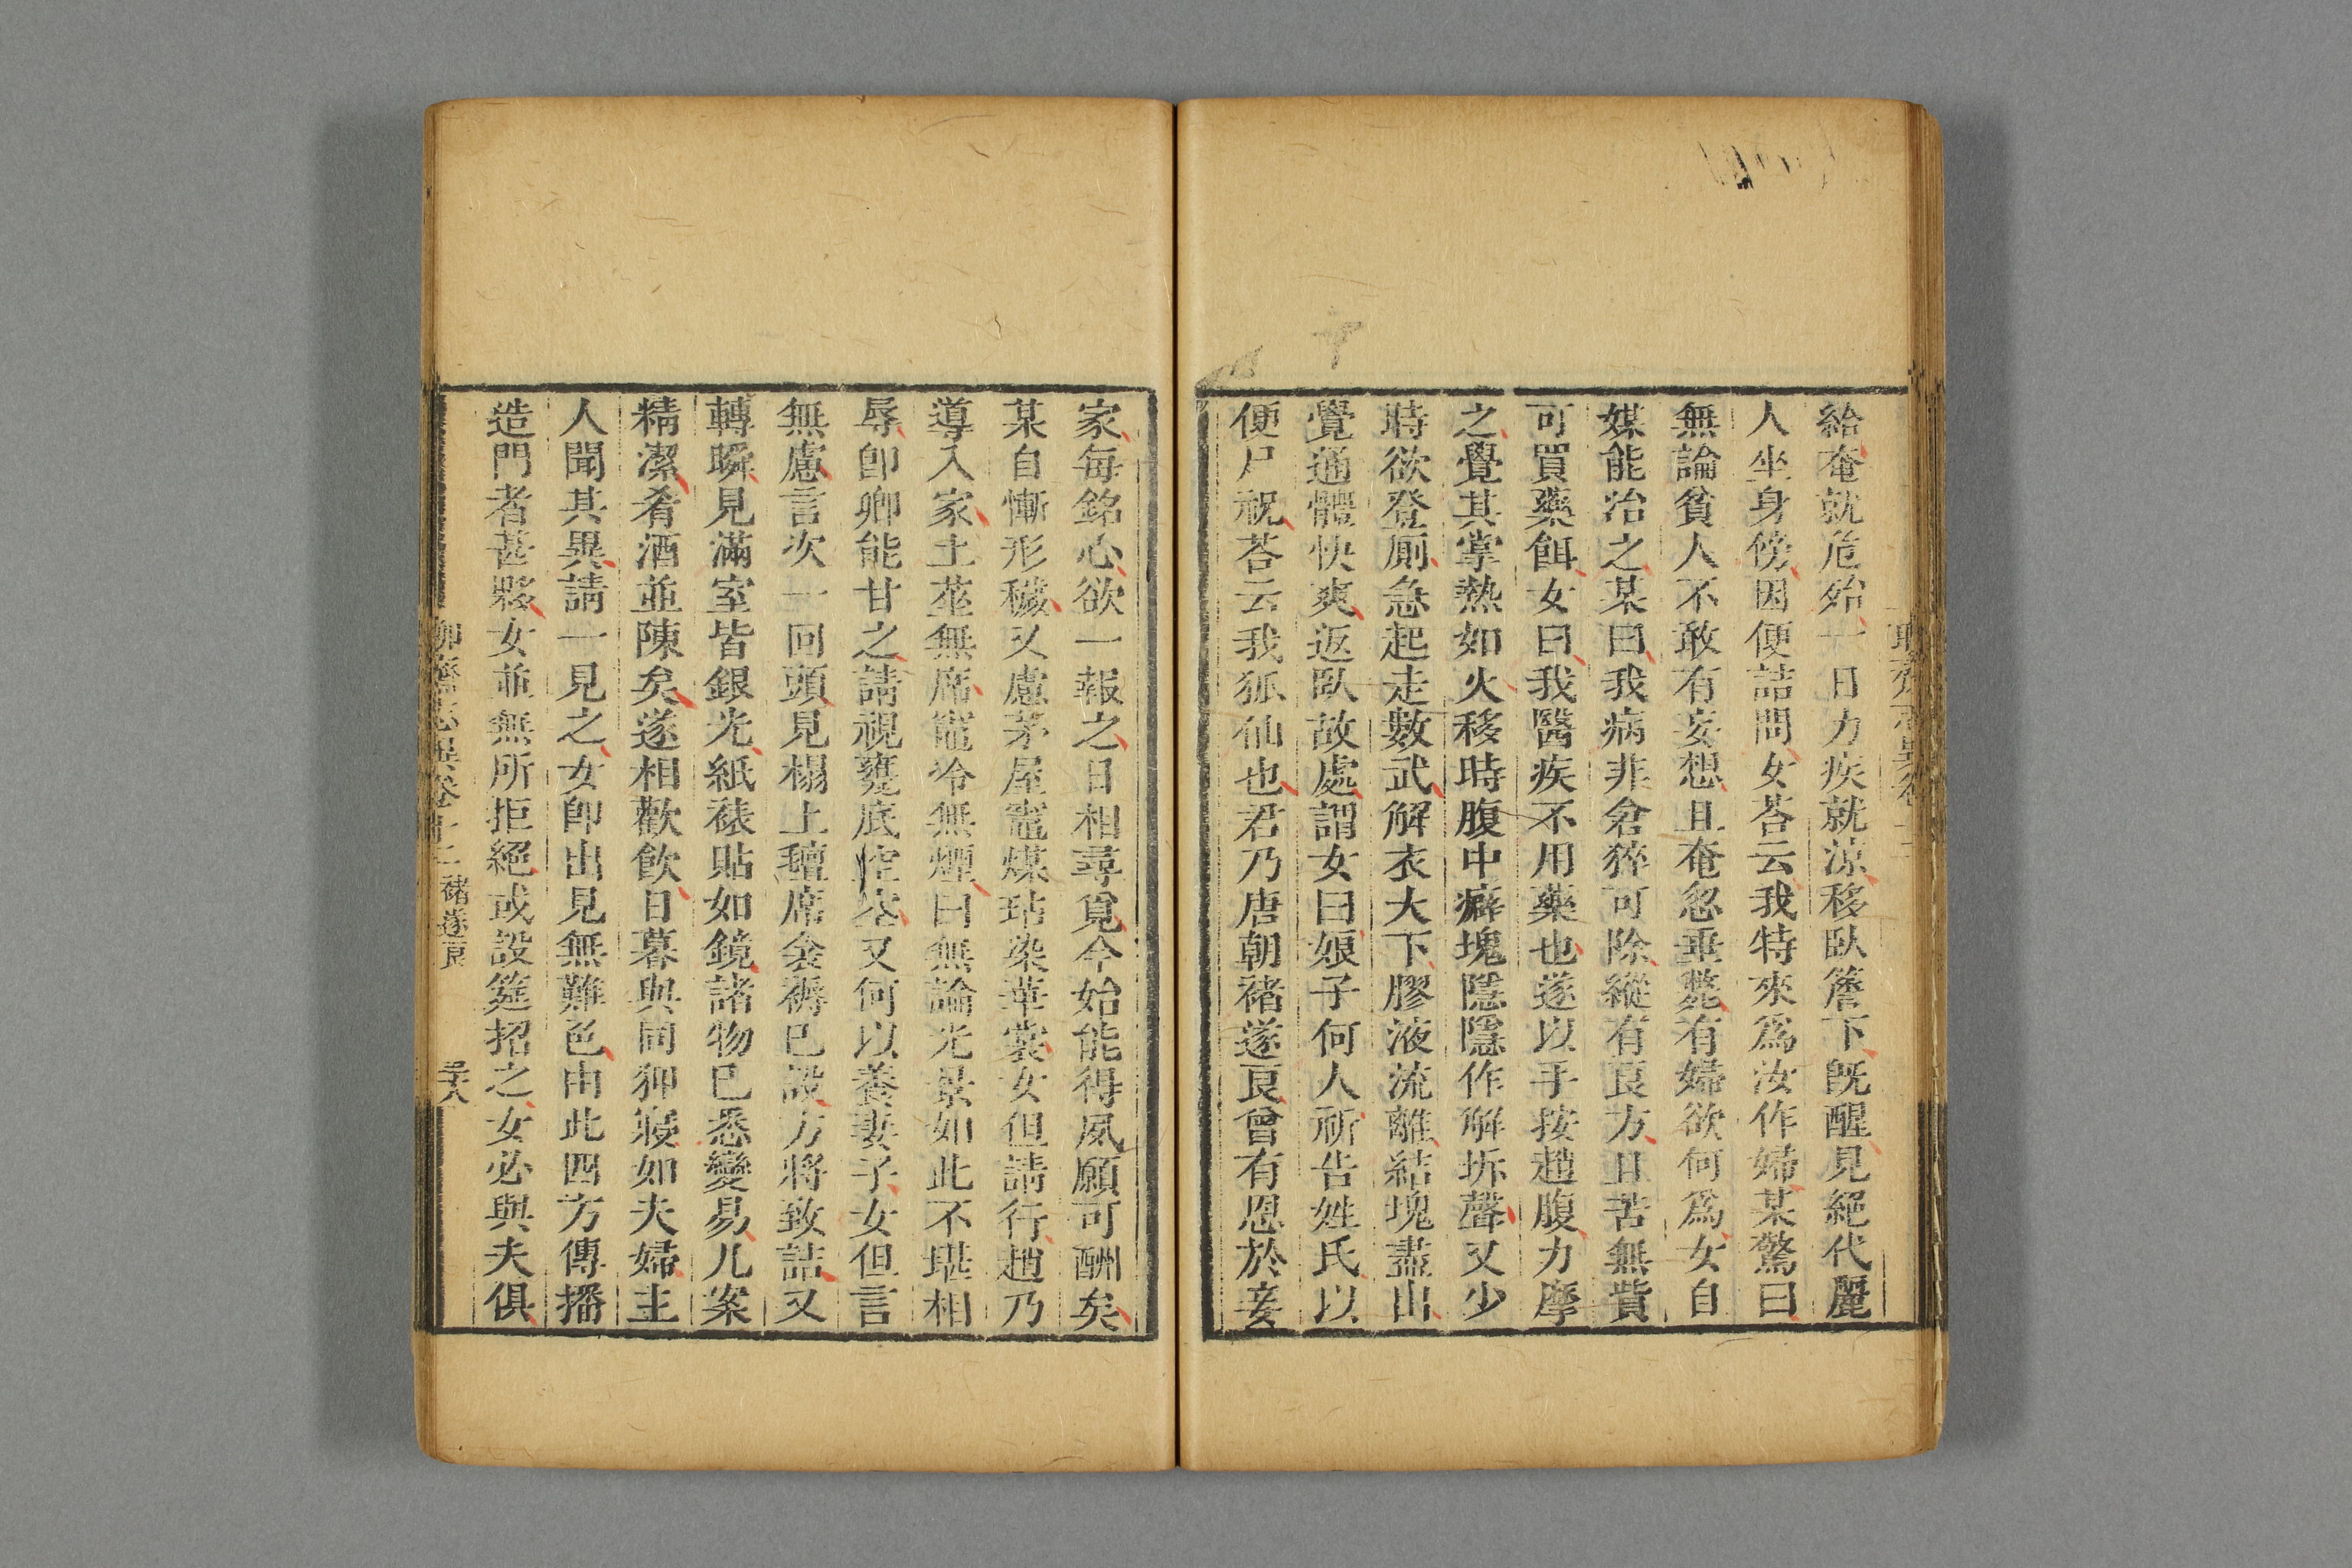 給奄就危殆一日力疾就涼移臥簷下既醒見絕代麗
人坐身傍因便詰問女荅云我特來爲汝作婦某驚曰
無論貧人不敢有妄想且奄忽垂斃有婦欲何爲女自
媒能治之某曰我病非倉猝可除縱有良方其苦無貲
可買藥餌女曰我醫疾不用藥也遂以手按趙腹力摩
之覺其掌熱如火移時腹中癖塊隱隱作解坼聲又少
時欲登廁急起走數武解衣大下膠液流離結塊盡出
覺通體快爽返臥故處謂女曰娘子何人祈告姓氏以
便尸祝荅云我狐仙也君乃唐朝褚遂良曾有恩於妾
家每銘心欲一報之日相尋覓今始能得夙願可酬矣
某自慚形穢又慮茅屋竈煤玷染華裳女但請行趙乃
導入家土莝無席竈冷無煙曰無論光景如此不堪相
辱卽卿能甘之請視甕底空空又何以養妻子女但言
無慮言次一回頭見榻上氊席衾褥已設方將致詰又
轉瞬見滿室皆銀光紙裱貼如鏡諸物已悉變易几案
精潔肴酒並陳矣遂相歡飲日暮與同狎寢如夫婦主
人聞其異請一見之女卽出見無難色由此四方傳播
造門者甚夥女並無所拒絕或設筵招之女必與夫俱
聊齋志異卷十二 褚遂良